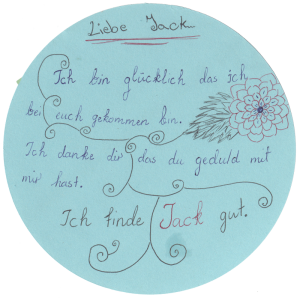 Liebe Jack
Ich bin glücklich das ich
bei euch gekommen bin.
Ich danke dir das du geduld mit
mir hast.
Ich finde Jack gut.